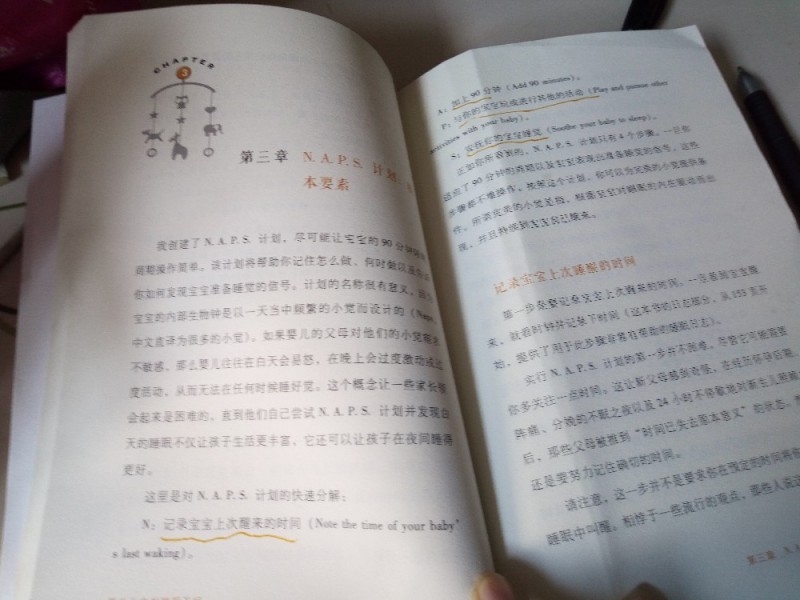 CHAPTER
3
第三章 N. A. P. S. 计划：
本要素
我创建了 N. A. P. S. 计划，尽可能让宝宝的 90 分钟
周期操作简单。该计划将帮助你记住怎么做、何时做以及
你如何发现宝宝准备睡觉的信号。计划的名称很有意义，因为
宝宝的内部生物钟是以一天当中频繁的小觉而设计的（Naps，
中文直译为很多的小觉）。如果婴儿的父母对他们的小觉需求
不敏感，那么婴儿往往在白天会易怒，在晚上会过度激动或过
度活动，从而无法在任何时候睡好觉。这个概念让一些家长
会起来是困难的，直到他们自己尝试 N. A. P. S. 计划并发现白
天的睡眠不仅让孩子生活更丰富，它还可以让孩子在夜间睡得
更好。
这里是对 N. A. P. S. 计划的快速分解：
N：记录宝宝上次醒来的时间（Note the time of your baby'
s last waking）。
A：加上 90 分钟（Add 90 minutes）。
P：与你的宝宝玩或进行其他的活动（Play and pursue other
activities with your baby）。
S：安抚你的宝宝睡觉（Soothe your baby to sleep）。
正如你所看到的，N. A. P. S. 计划只有 4 个步骤。一旦你
适应了 90 分钟的周期以及宝宝表现出准备睡觉的信号，这些
步骤都不难操作。按照这个计划，你可以为完美的小觉提供条
件。所谓完美的小觉是指，根据宝宝对睡眠的内在驱动而出
现，并且持续到其自己醒来。
记录宝宝上次睡醒的时间
第一步是要记录宝宝上次醒来的时间。一旦看到宝宝醒
来，就看时钟并记录下时间（这本书的日志部分，从 153 页开
始，提供了用于此步骤非常有帮助的睡眠日志）。
实行 N. A. P. S. 计划的第一步并不困难，尽管它可能需要
你多关注一点时间。这让新父母感到奇怪，在经历怀孕后期、
阵痛、分娩的不眠之夜以及 24 小时不停歇地对新生儿照顾
后，那些父母被推到“时间已失去原本意义”的状态，
还是要努力记住确切的时间。
请注意，这一步并不是要求你在预定的时间将你
睡眠中叫醒。相悖于一些流行的观点，那些人说
第三章 N.